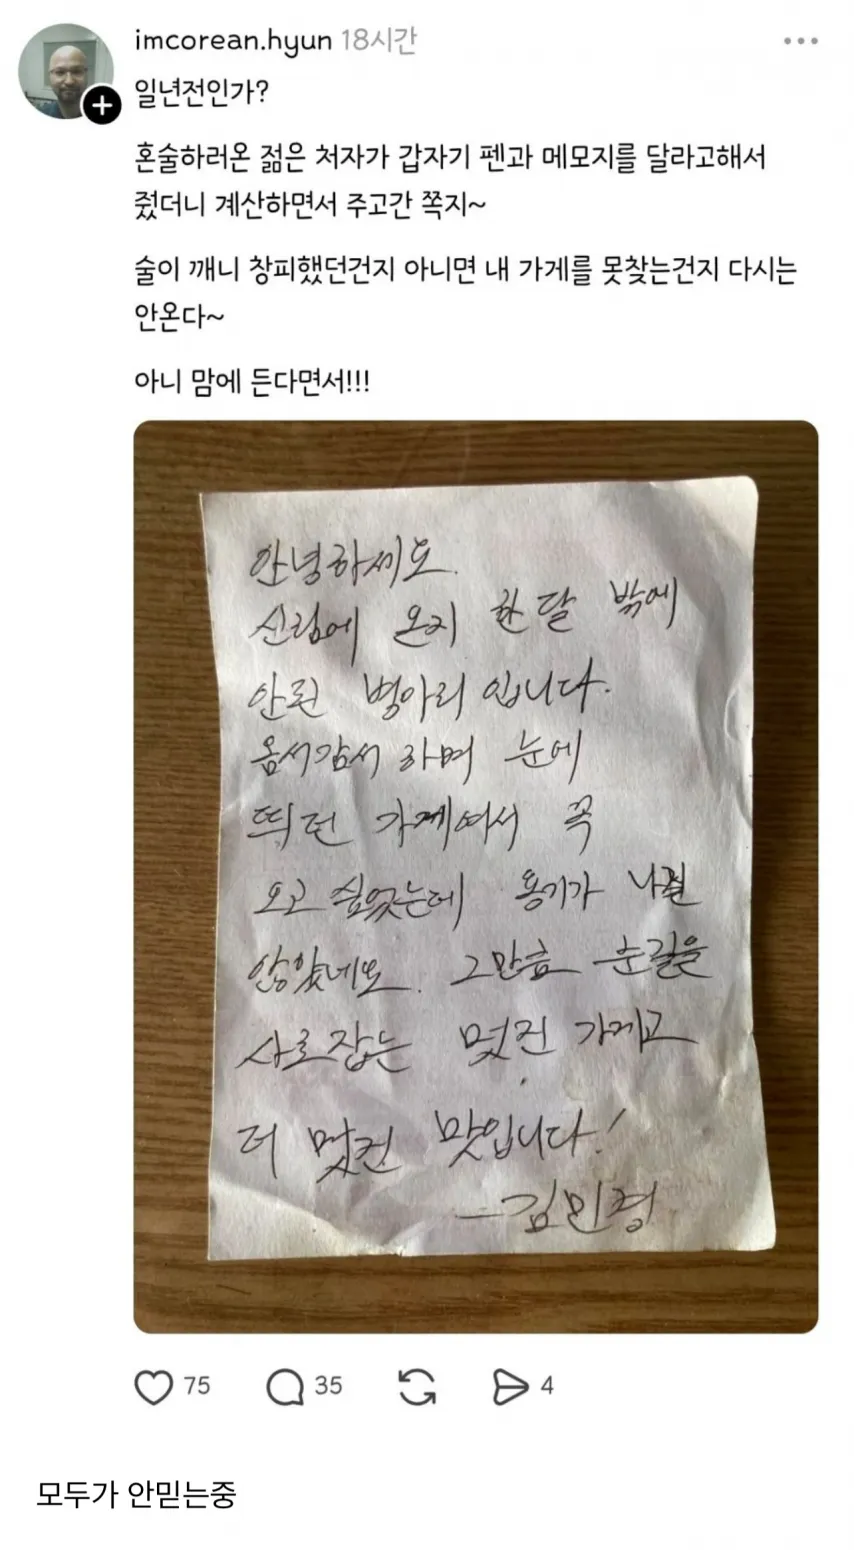 imcorean.hyun 18시간
일년전인가?
혼술하러온 젊은 처자가 갑자기 펜과 메모지를 달라고해서
줬더니 계산하면서 주고간 쪽지~
술이 깨니 창피했던건지 아니면 내 가게를 못찾는건지 다시는
안온다~
아니 맘에 든다면서!!!
안녕하세요.
신림에 온지 한달 밖에
안된 병아리 입니다.
옴서감서 하며 눈에
띄던 가게여서 꼭
오고 싶었는데 용기가 나질
않았네요. 그만큼 눈길을
사로잡는 멋진 가게고
더 멋진 맛입니다!
-김민정
75 35 4
모두가 안믿는중